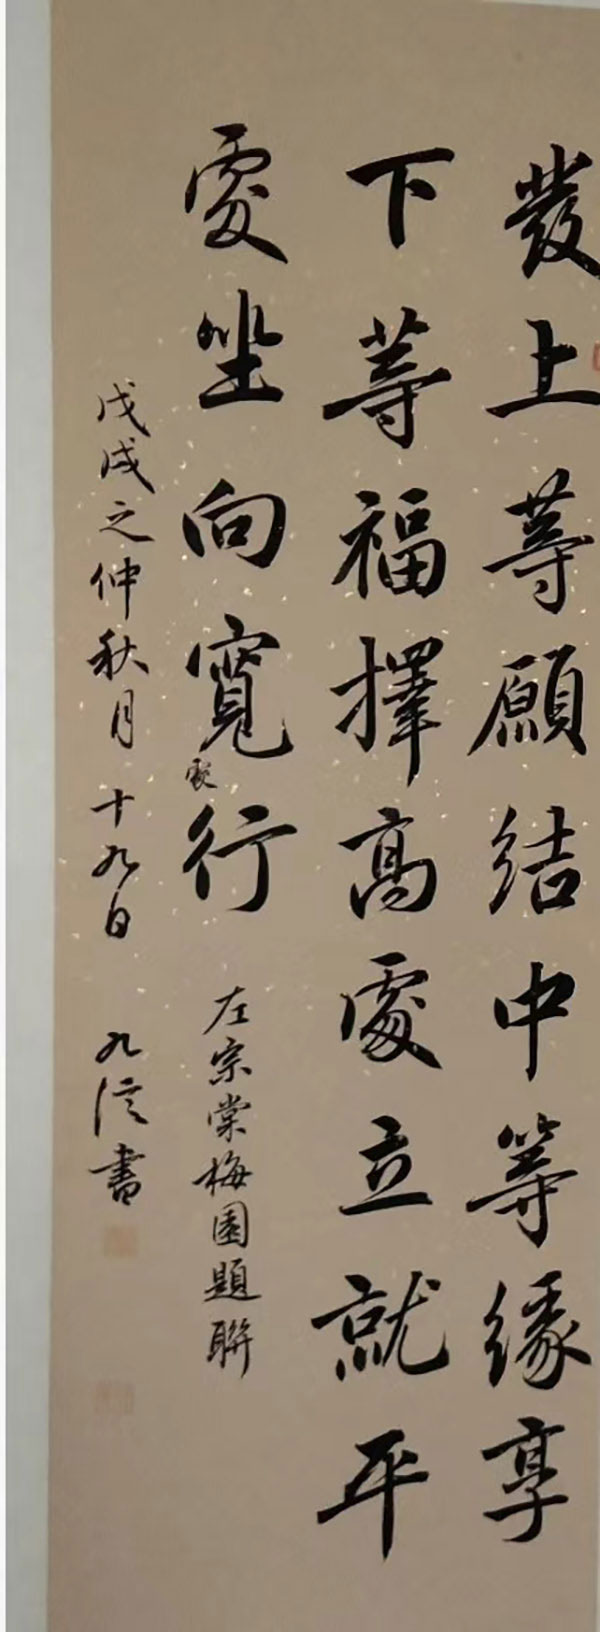 發上等願結中等緣享
下等福擇高處立就平
處坐向寬處行
左宗棠梅園題聯
戊戌之仲秋月十九日 九溪書